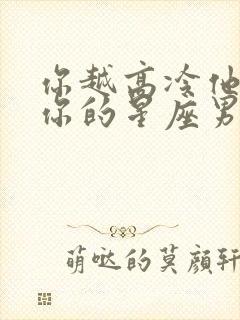 你越高冷他
你的星座男
萌哒的莫颜轩